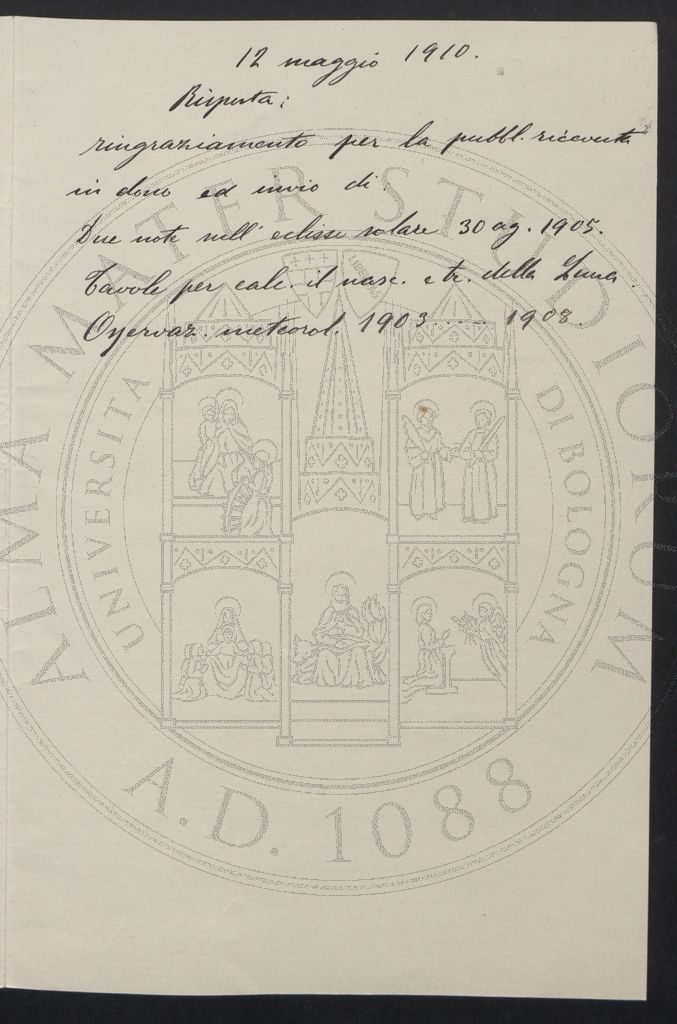 12 maggio 1910.
Risposta:
ringraziamento per la pubbl. ricevuta
in dono ed invio di:
Due note sull' eclisse solare 30 ag. 1905.
Tavole per calc. il nasc. e tr. della Luna.
Osservaz. meteorol. 1903 .... 1908.
ALMA MATER STUDIORUM
UNIVERSITA DI BOLOGNA
LIBERTAS
A.D. 1088